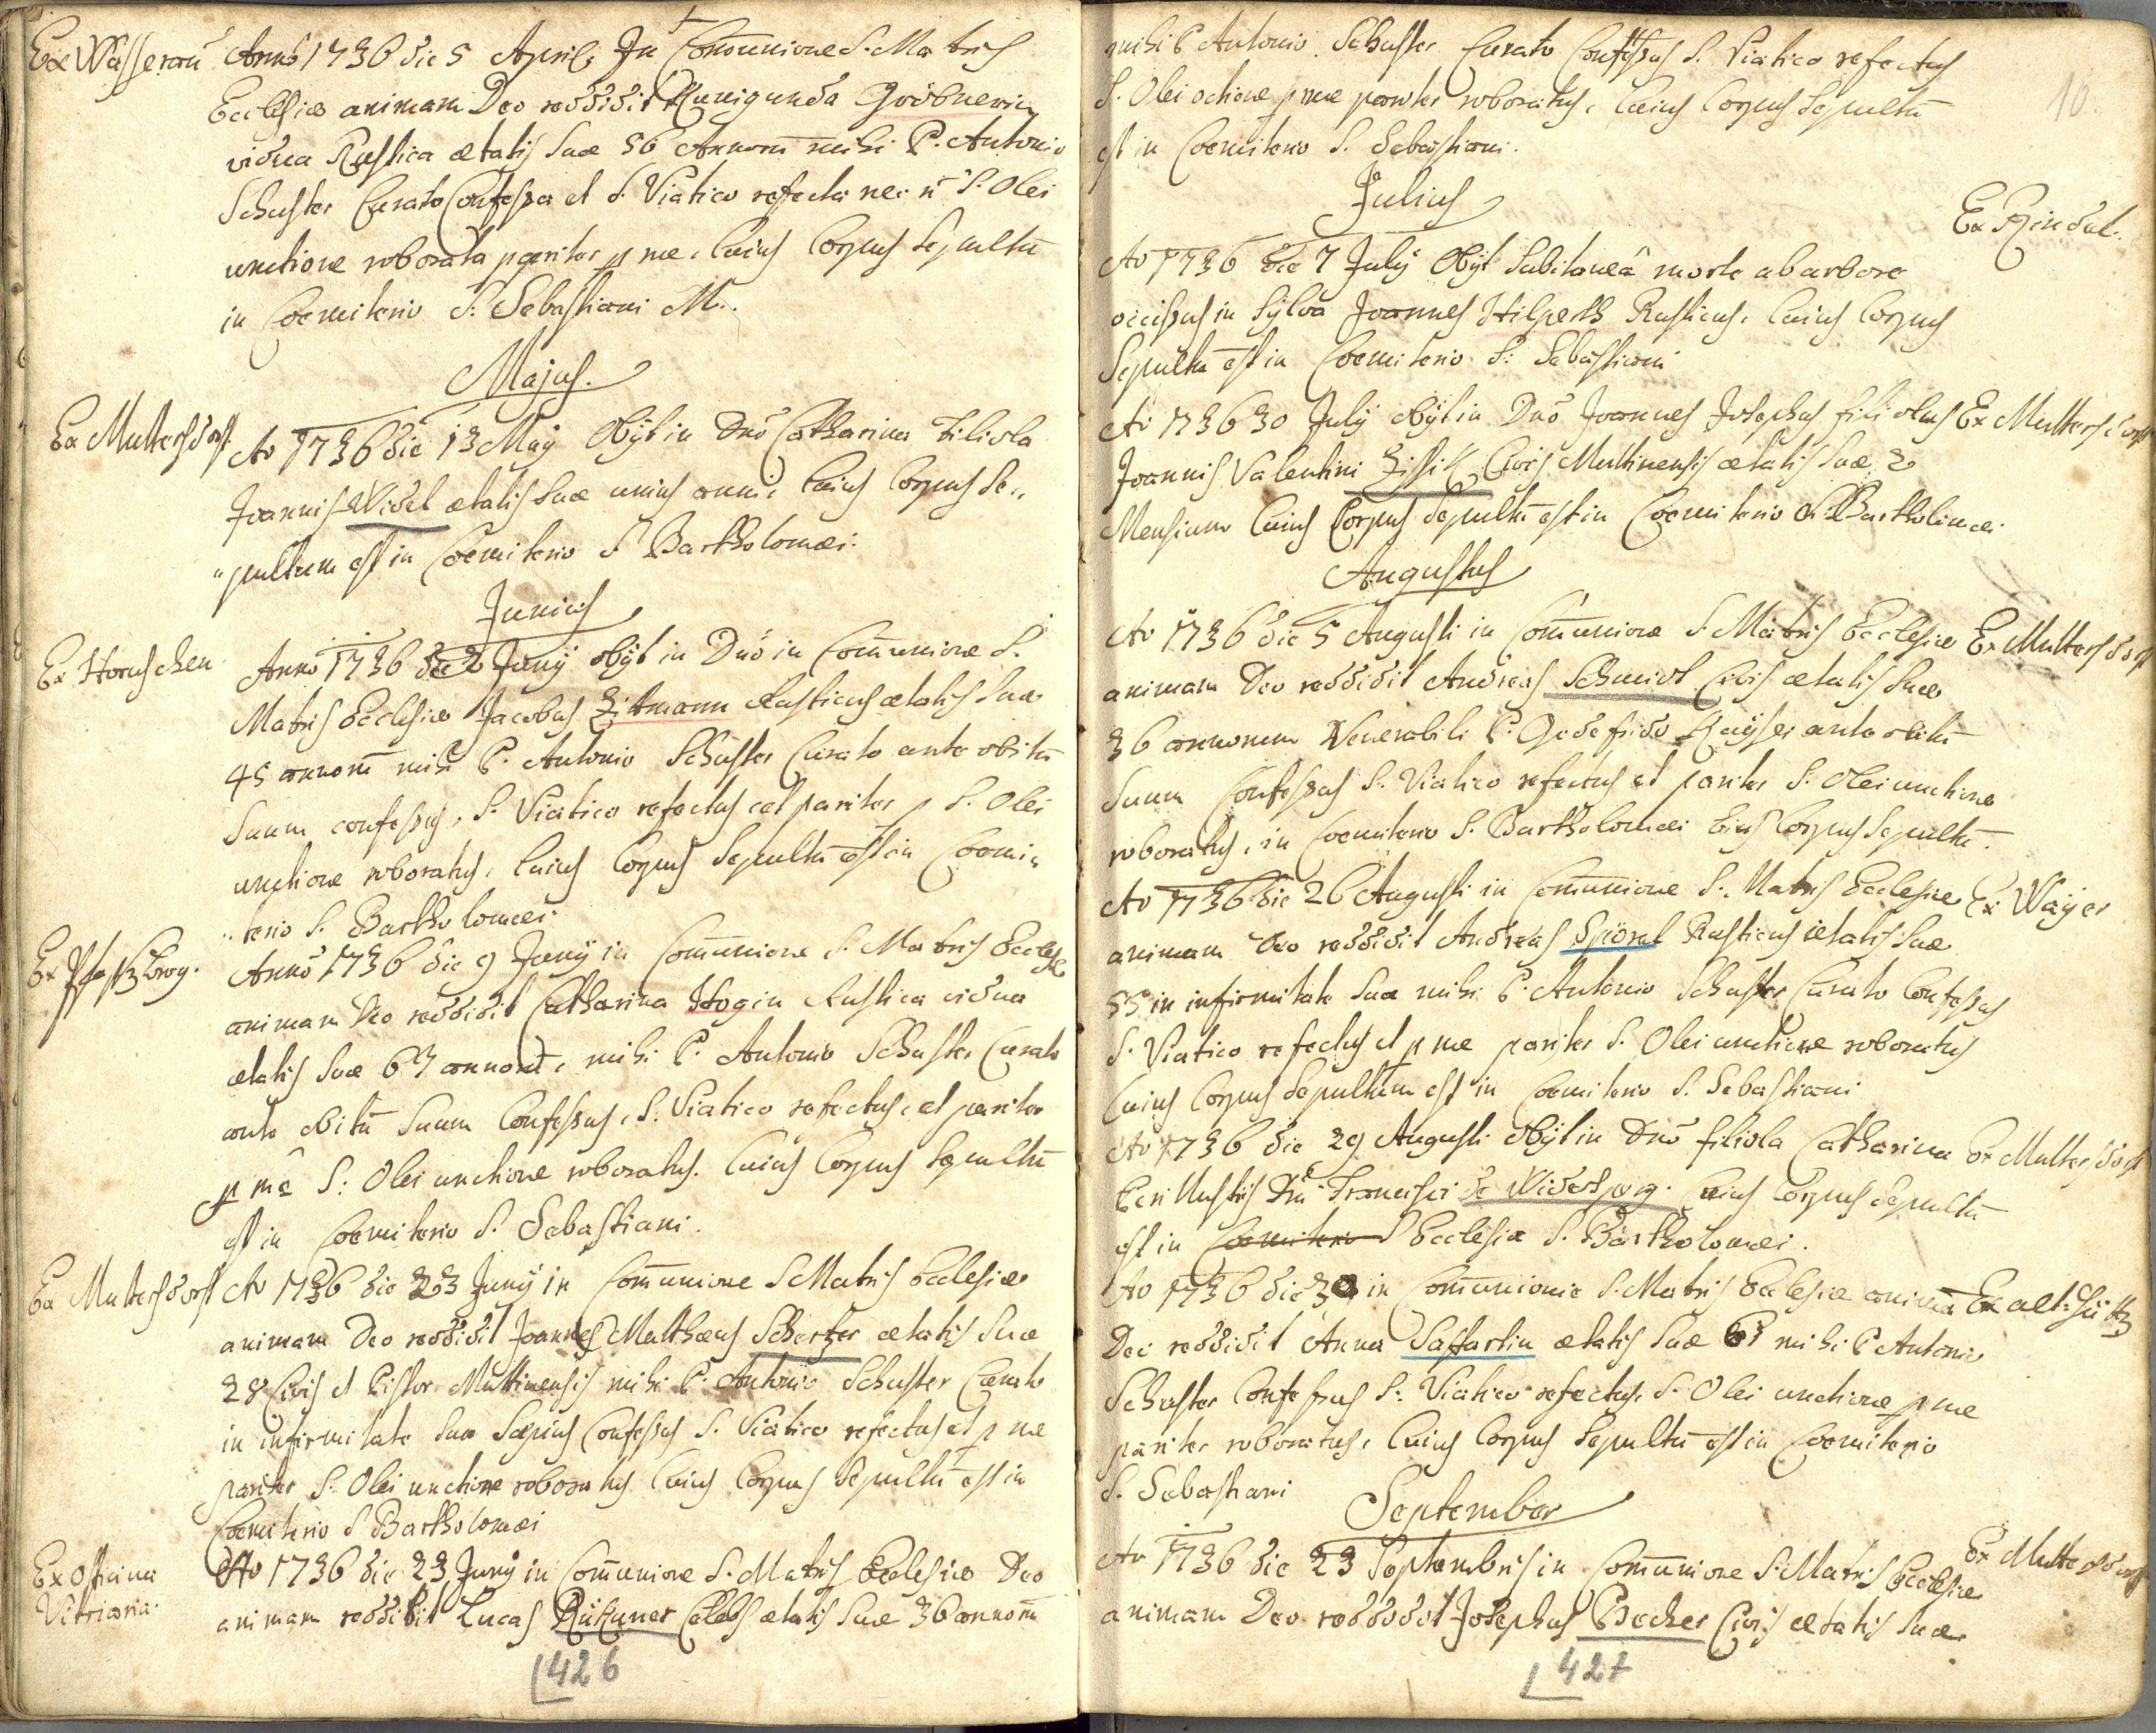 Ex Wasseraū
Anno 1736 die 5 April. In Communione S. Matris
Ecclesiæ animam Deo reddidit Kunigunda Gröbnerin
vidua Rustica ætatis suæ 56 Annorū mihi P. Antonio
Schuster Curato Confessa et S. Viatico refecta nec n̄ S. Olei
unctione roborata pariter p me, cuius Corpus Sepultū
in Coemiterio S. Sebastiani M.
Majus.
Ex Muttersdorf
Ao 1736 die 13 Maÿ Obÿt in Dnō Catharina Filiola
Joannis Widel ætatis suæ unius anni, cuius Corpus Se„
„pultum est in Coemiterio S. Bartholomæi.
Junius
Ex Horuschen
Anno 1736 die 2 Junÿ obÿt in Dnō in Com̄unione S.
Matris Ecclesiæ Jacobus Zitmann Rusticus ætatis suæ
45 annorū mihi P. Antonio Schuster Curato ante obitū
suum confessus, S. Viatico refectus et pariter p S. Olei
unctione roboratus, cuius Corpus Sepultū est in Coemi„
„terio S. Bartholomæi.
Anno 1736 die 9 Junÿ in Com̄unione S. Matris Eccles:
animam Deo reddidit Catharina Hogin Rustica vidua
ætatis suæ 67 annorū, mihi P. Antonio Schuster Curato
ante obitū suum Confessus, S. Viatico refectus, et pariter
p me S: Olei unctione roboratus. Cuius Corpus Sepultū
est in Coemiterio S. Sebastiani.
Ex Muttersdorf
Ao 1736 die 23 Junÿ in Com̄unione S Matris Ecclesiæ
animam Deo reddidit Joannes Matthæus Schertzer ætatis suæ
28 Civis et Pistor Muttinensis mihi P. Antonio Schuster Curato
in infirmitate sua sæpius Confessus S. Viatico refectus et p me
pariter S. Olei unctione roboratus Cuius Corpus Sepultū est in
Coemiterio S Bartholomæi
Ex Officina
Vitriaria.
Ao 1736 die 23 Junÿ in Com̄unione S. Matris Ecclesiæ Deo
animam reddidit Lucas Cælebs ætatis suæ 36 annorū
426
10.
mihi P Antonio Schuster Curato Confessus S. Viatico refectus
S. Olei p me pariter roboratus, Cuius Corpus Sepultū
est in Coemiterio S. Sebastiani.
Julius
Ex Rindal.
Ao 1736 die 7 Julÿ Obÿt Subitaneâ morte ab arbore
occissus in Sylva Joannes Hilperth Rusticus, Cuius Corpus
Sepultū est in Coemiterio S: Sebastiani
Ao 1736 30 Julÿ obÿt in Dnō Joannes Josephus filiolus
Ex Muttersdorf
Joannis Valentini Zissik Civis Muttinensis ætatis suæ 2
Mensium Cuius Corpus Sepultū est in Coemiterio S. Bartholimæi.
Augustus
Ao 1736 die 5 Augusti in Com̄unione S. Matris Ecclesiæ
Ex Muttersdorf
animam Deo reddidit Andreas Schmidt Civis ætatis suæ
36 annorum Venerabili P. Godefrido ante obitū
suum Confessus S. Viatico refectus et pariter S. Olei unctione
roboratus, in Coemiterio S. Bartholomæi Eius Corpus Sepultū.
Ao 1736 die 26 Augusti in Com̄unione S. Matris Ecclesiæ
Ex Waÿer
animam Deo reddidit Andreas Spöral Rusticus ætatis suæ
55 in infirmitate sua mihi P. Antonio Schuster Curato Confessus
S. Viatico refectus et p me pariter S. Olei unctione roboratus
Cuius Corpus Sepultum est in Coemiterio S. Sebastiani
Ao 1736 die 29 Augusti Obÿt in Dnō filiola Catharina
Ex Muttersdorf
Dn̄i Francisci de Widersperg. Cuius Corpus Sepultū
est in Coemiterio S Ecclesia S. Bartholomæi.
Ao 1736 die 30 in Com̄unione S. Matris Ecclesiæ animā
Ex alt: Hütt
Deo reddidit Anna Saffartin ætatis suæ mihi P Antonio
Schuster Confessus S: Viatico refectus, S. Olei unctione p me
pariter roboratus, Cuius Corpus Sepultū est in Coemiterio
S. Sebastiani
September
Ex Muttersdorf
Ao 1736 die 23 Septembris in Com̄unione S. Matris Ecclesiæ
animam Deo reddidit Josephus Becher Civis ætatis suæ
427